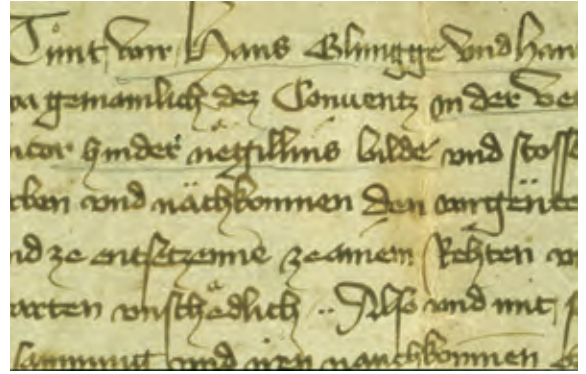 Tunt wir Hans Blungge vnd Han
gemainlich dez Conuentz in der Ve
hinder nëgillins bilde vnd stosse
rben vnd nächkomen den vorgente
nd ze entsetzenne ze ainem Rehten v
arten vnschädlich ·· Also vnd mit
samnung vnd iren nauchkomen